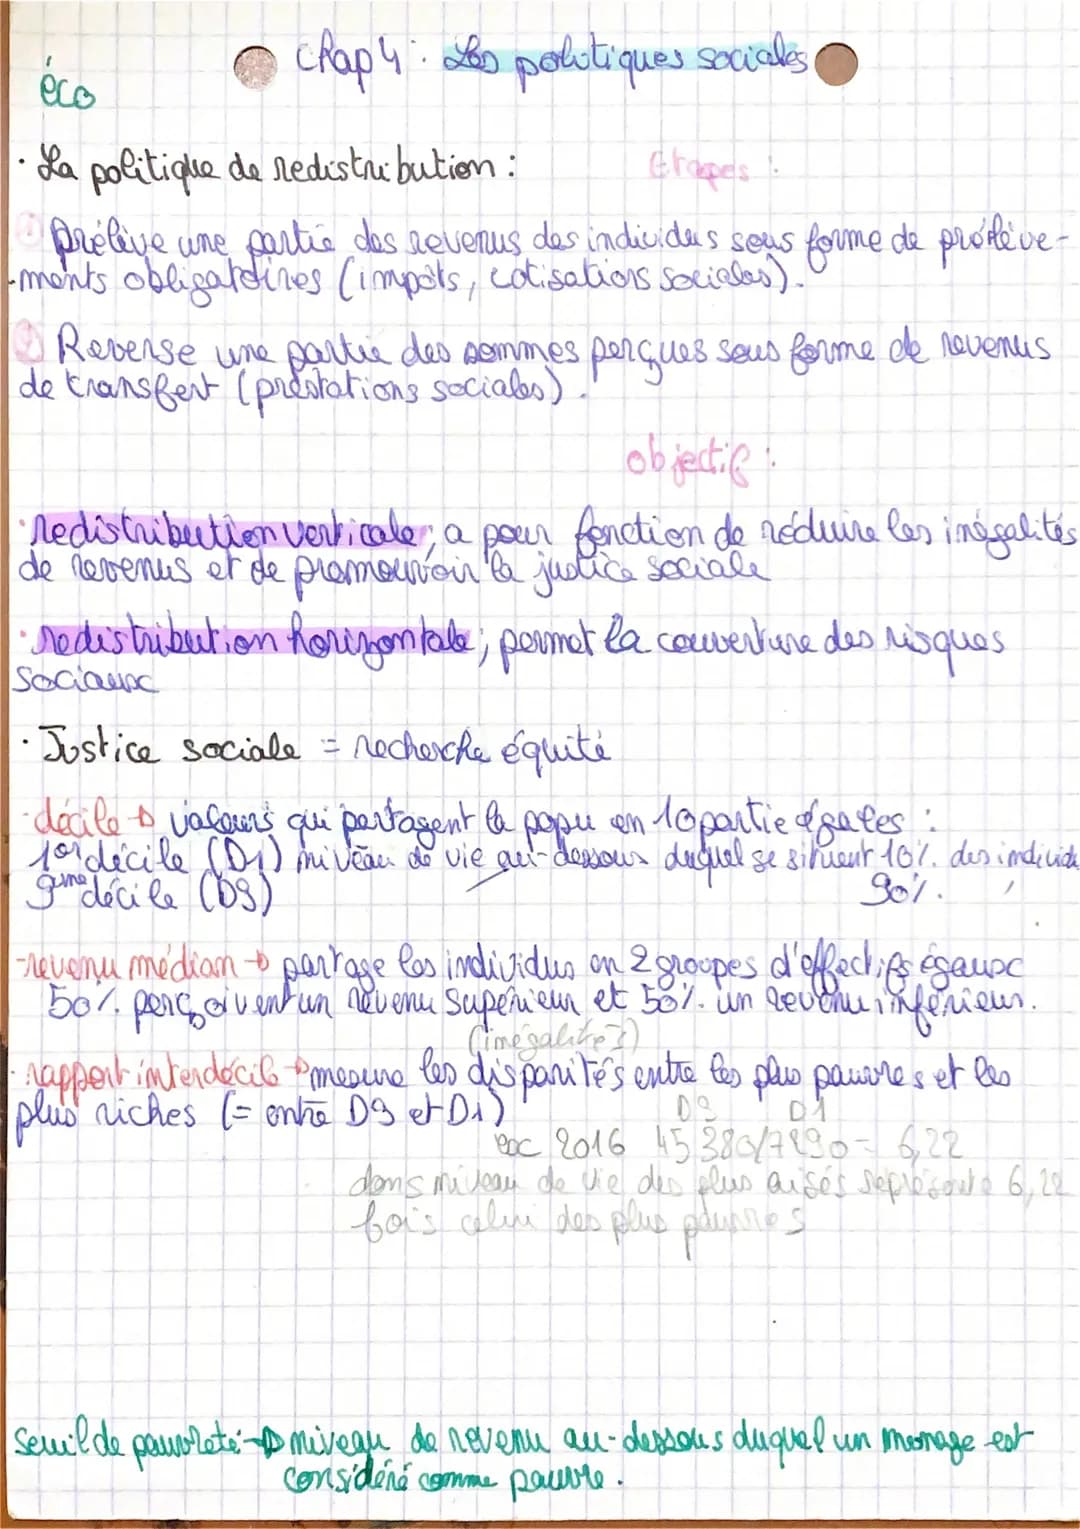 Chap 4 : Les politiques sociales
éco
· La politique de redistribution :
Etapes :
① Prélève une partie des revenus des individus sous forme de prélève-
-ments obligatoires (impôts, cotisations sociales).
② Reverse une partie des sommes perçues sous forme de revenus
de transfert (prestations sociales).
objectif :
· redistribution verticale ; a pour fonction de réduire les inégalités
de revenus et de promouvoir la justice sociale
· redistribution horizontale ; permet la couverture des risques
sociaux
· Justice sociale = recherche équité
· décile → valeurs qui partagent la popu en 10 partie égales :
1er décile (D1) niveau de vie au-dessous duquel se situent 10%. des individu
9ème décile (D9) 90%.
- revenu médian → partage les individus en 2 groupes d'effectifs égaux
50%. perçoivent un revenu supérieur et 50%. un revenu inférieur.
(inégalités)
· rapport interdécile → mesure les disparités entre les plus pauvres et les
plus riches (= entre D9 et D1)
D9 D1
ex 2016 45 380/7290 = 6,22
dans niveau de vie des plus aisés représente 6,22
fois celui des plus pauvres
Seuil de pauvreté → niveau de revenu au-dessous duquel un menage est
considéré comme pauvre.